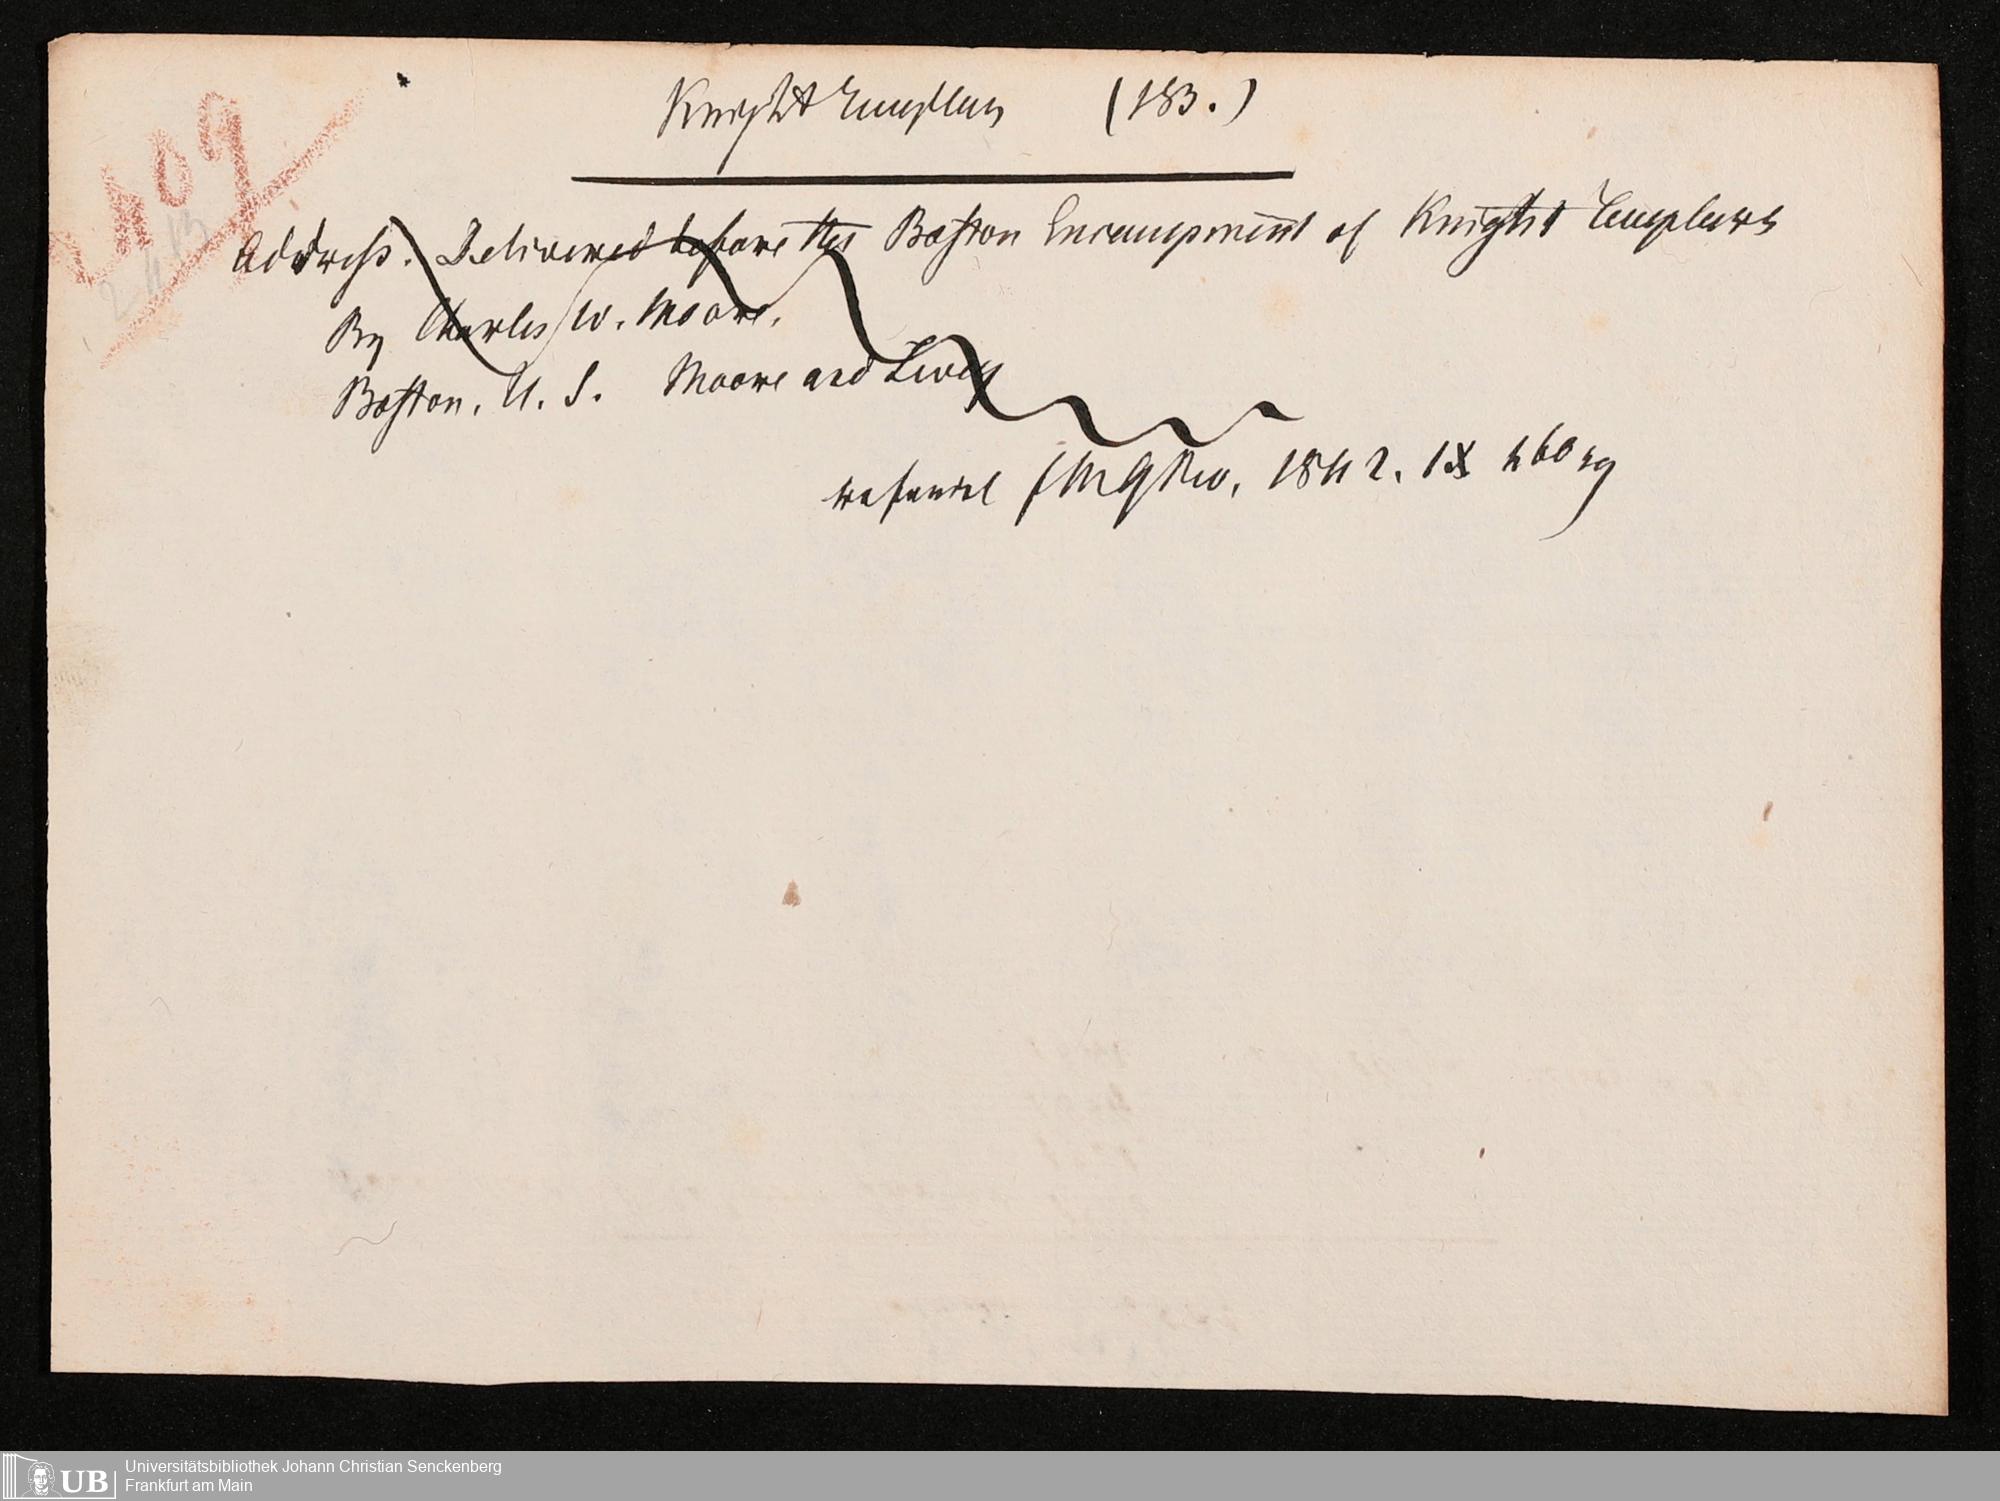 Knight Templars (183.)
409
Address. Delivered before the Boston Encampment of Knights Templars
By Charles W. Moore.
Boston, U. S. Moore and
referirt FMQRev, 1842.
UB
Universitätsbibliothek Johann Christian Senckenberg
Frankfurt am Main